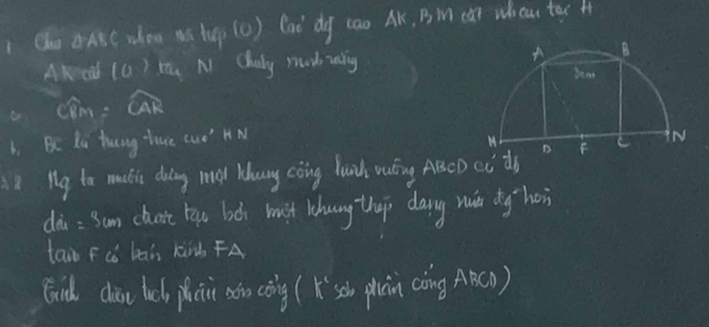 1 Cho ΔABC nhọn nội tiếp (O) Các đg cao AK, BM cắt nhau tại H
AK cắt (O) tại N Chứng minh rằng
a CBM = CAK
b, BC là trung trực của HN
2 Ng ta muốn dựng một khung cổng hình vuông ABCD có độ
dài = 3cm được tạo bởi một khung thép dạng nửa đg tròn
tâm F có bán kính FA
Tính diện tích phần cổng (K phần cổng ABCD)
A
B
3cm
M
D
F
C
N